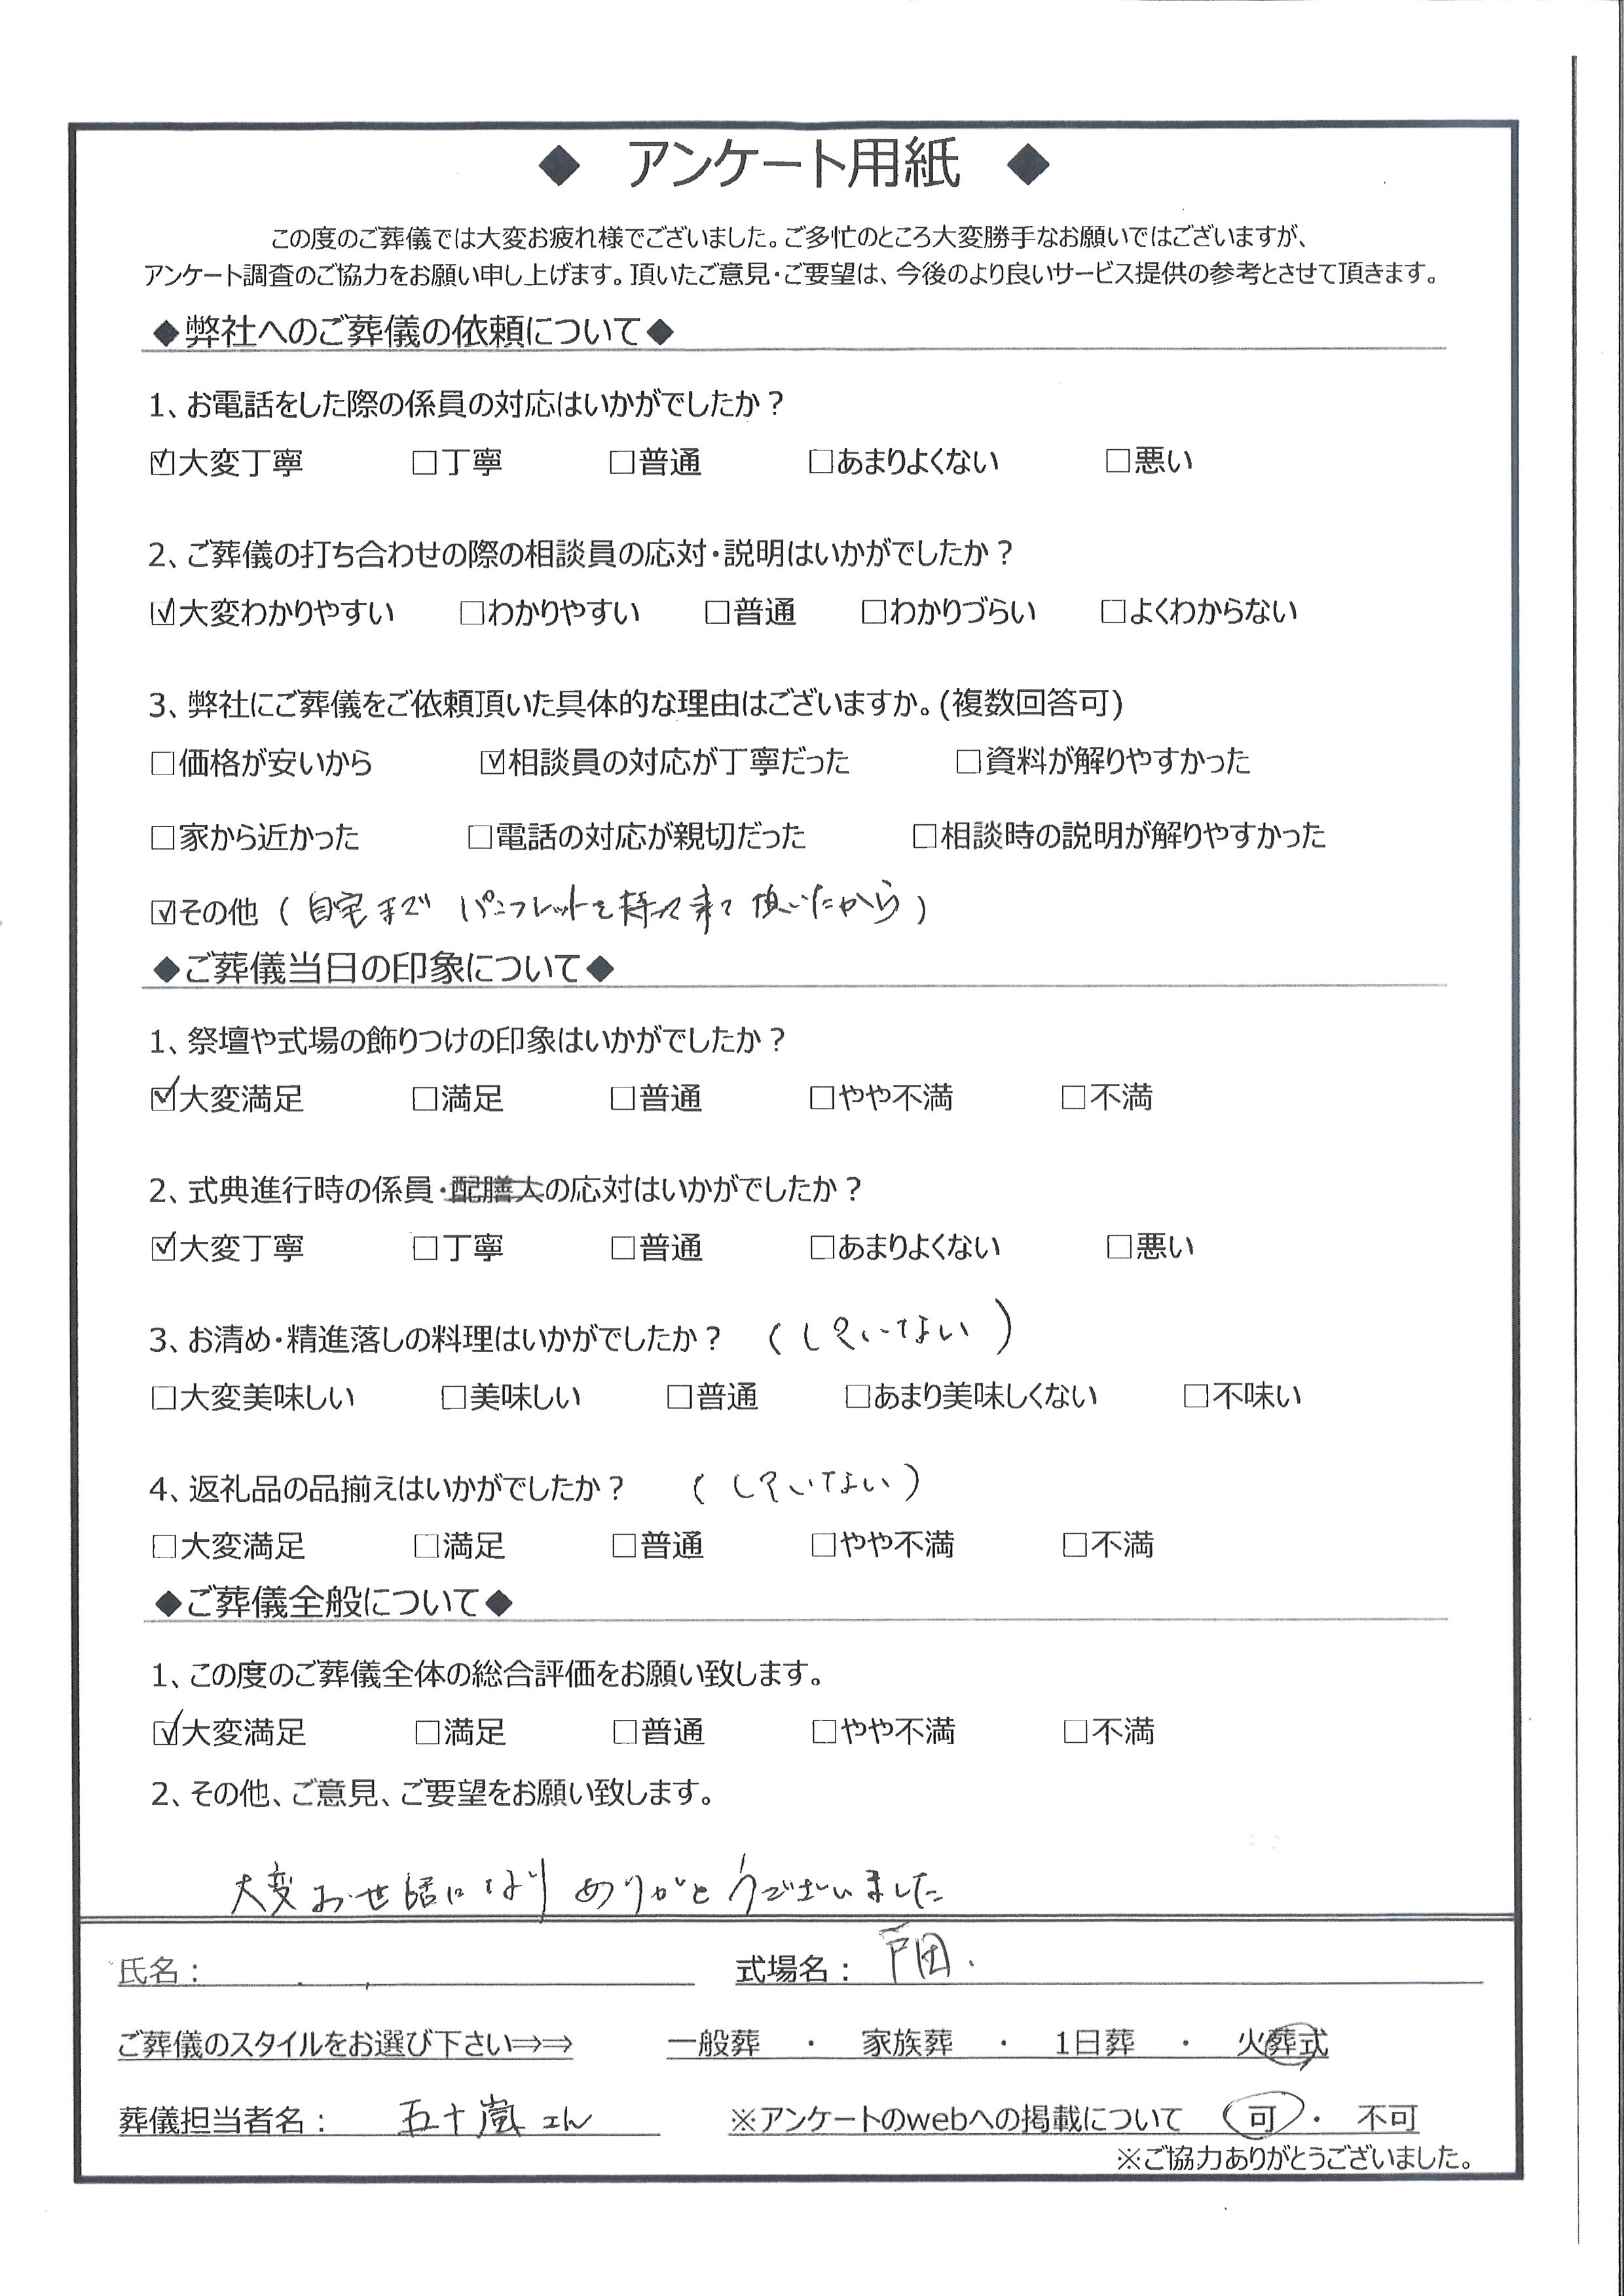 ◆ アンケート用紙 ◆
この度のご葬儀では大変お疲れ様でございました。ご多忙のところ大変勝手なお願いではございますが、
アンケート調査のご協力をお願い申し上げます。頂いたご意見・ご要望は、今後のより良いサービス提供の参考とさせて頂きます。
◆弊社へのご葬儀の依頼について◆
1、お電話をした際の係員の対応はいかがでしたか？
☑大変丁寧 □丁寧 □普通 □あまりよくない □悪い
2、ご葬儀の打ち合わせの際の相談員の応対・説明はいかがでしたか？
☑大変わかりやすい □わかりやすい □普通 □わかりづらい □よくわからない
3、弊社にご葬儀をご依頼頂いた具体的な理由はございますか。(複数回答可)
□価格が安いから ☑相談員の対応が丁寧だった □資料が解りやすかった
□家から近かった □電話の対応が親切だった □相談時の説明が解りやすかった
☑その他 ( 自宅まで パンフレットを持って来て頂いたから )
◆ご葬儀当日の印象について◆
1、祭壇や式場の飾りつけの印象はいかがでしたか？
☑大変満足 □満足 □普通 □やや不満 □不満
2、式典進行時の係員・配膳人の応対はいかがでしたか？
☑大変丁寧 □丁寧 □普通 □あまりよくない □悪い
3、お清め・精進落しの料理はいかがでしたか？ (していない)
□大変美味しい □美味しい □普通 □あまり美味しくない □不味い
4、返礼品の品揃えはいかがでしたか？ (していない)
□大変満足 □満足 □普通 □やや不満 □不満
◆ご葬儀全般について◆
1、この度のご葬儀全体の総合評価をお願い致します。
☑大変満足 □満足 □普通 □やや不満 □不満
2、その他、ご意見、ご要望をお願い致します。
大変お世話になり ありがとうございました
氏名： 式場名： 戸田.
ご葬儀のスタイルをお選び下さい⇒⇒ 一般葬 ・ 家族葬 ・ 1日葬 ・ 火葬式
葬儀担当者名： 五十嵐さん ※アンケートのwebへの掲載について 可 ・ 不可
※ご協力ありがとうございました。